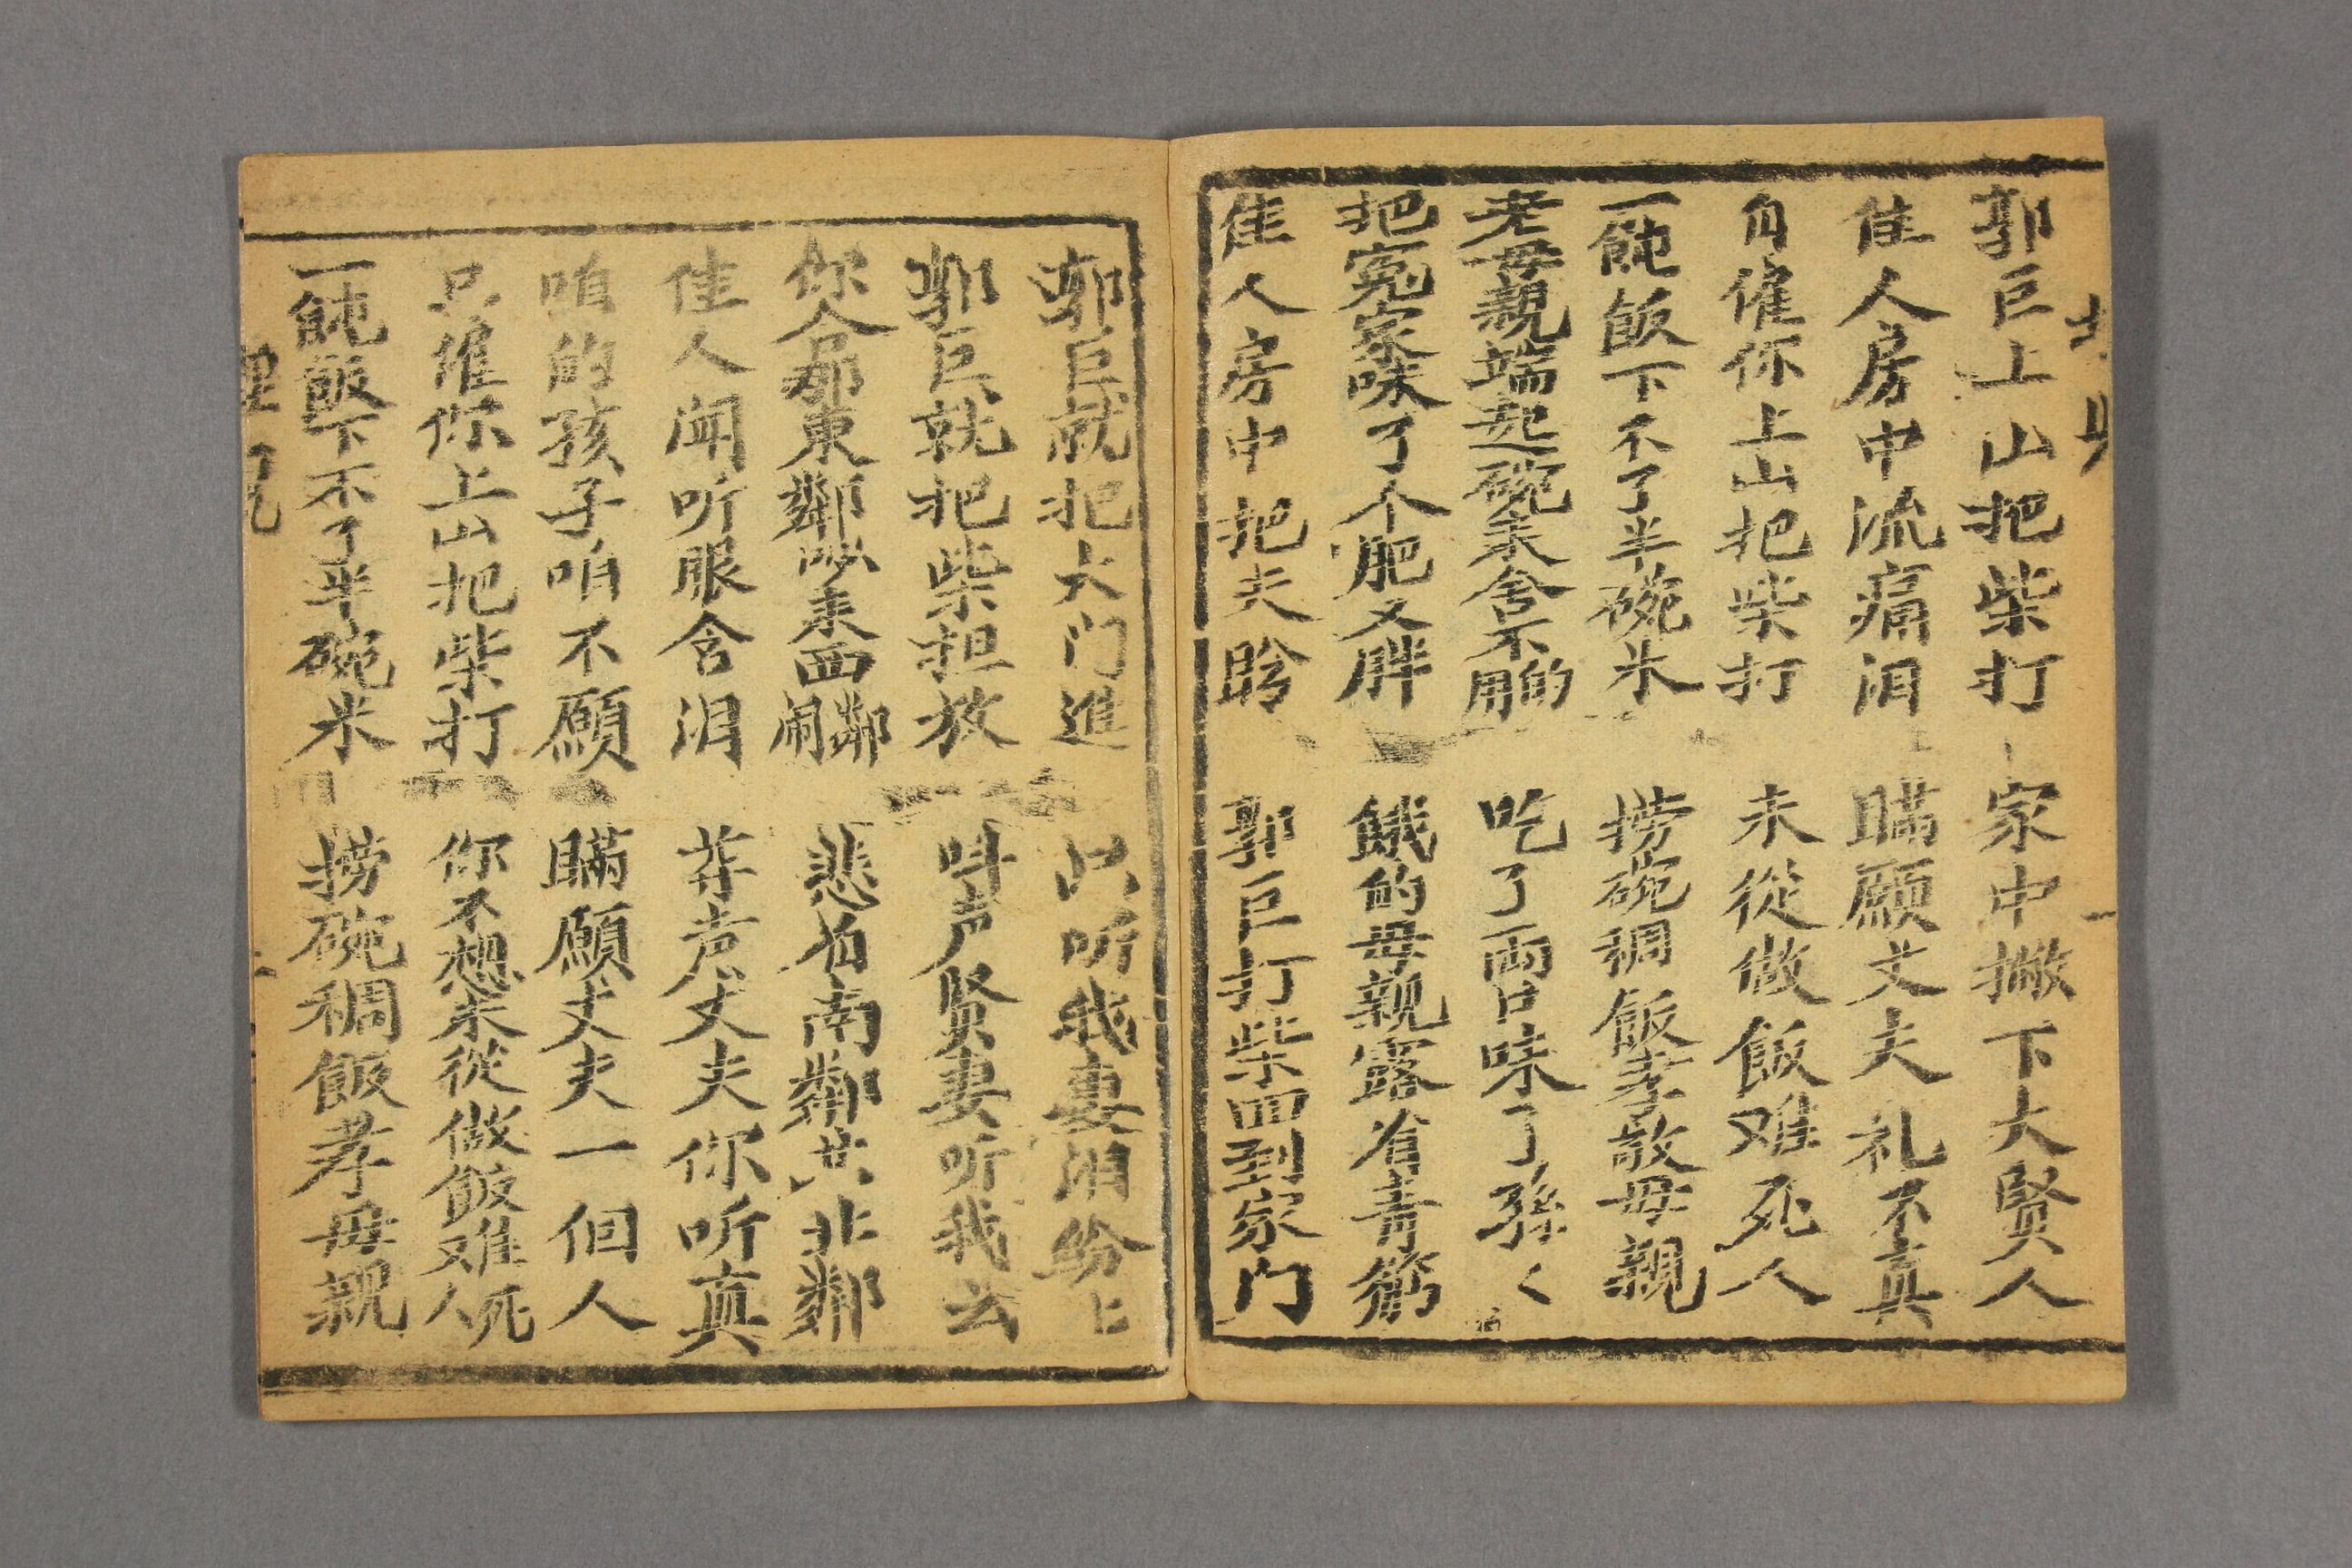 郭巨上山把柴打 家中撇下大贤人
佳人房中流痛泪 瞒願丈夫礼不真
自催你上山把柴打 未從做飯难死人
一飩飯下不了半碗米 捞碗稠飯孝敬母親
老母親端起碗來舍不的用 吃了両口味了孫く
把冤家味了个肥又胖 餓的母親露着青筋
佳人房中把夫盼 郭巨打柴回到家门
郭巨就把大门進 只听我妻泪紛上
郭巨就把柴担放 呌声贤妻听我云
你今那東鄰吵來西鄰闹 悲的南鄰共北鄰
佳人闻听眼含泪 声丈夫你听真
咱的孩子咱不願 瞒願丈夫一個人
只催你上山把柴打 你不想未從做飯难死人
一飩飯下不了半碗米 捞碗稠飯孝母親